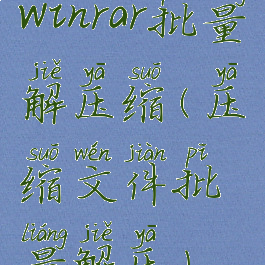 winrar批量
jiě yā suō yā
解压缩(压
suō wén jiàn pī
缩文件批
liáng jiě yā
量解压)